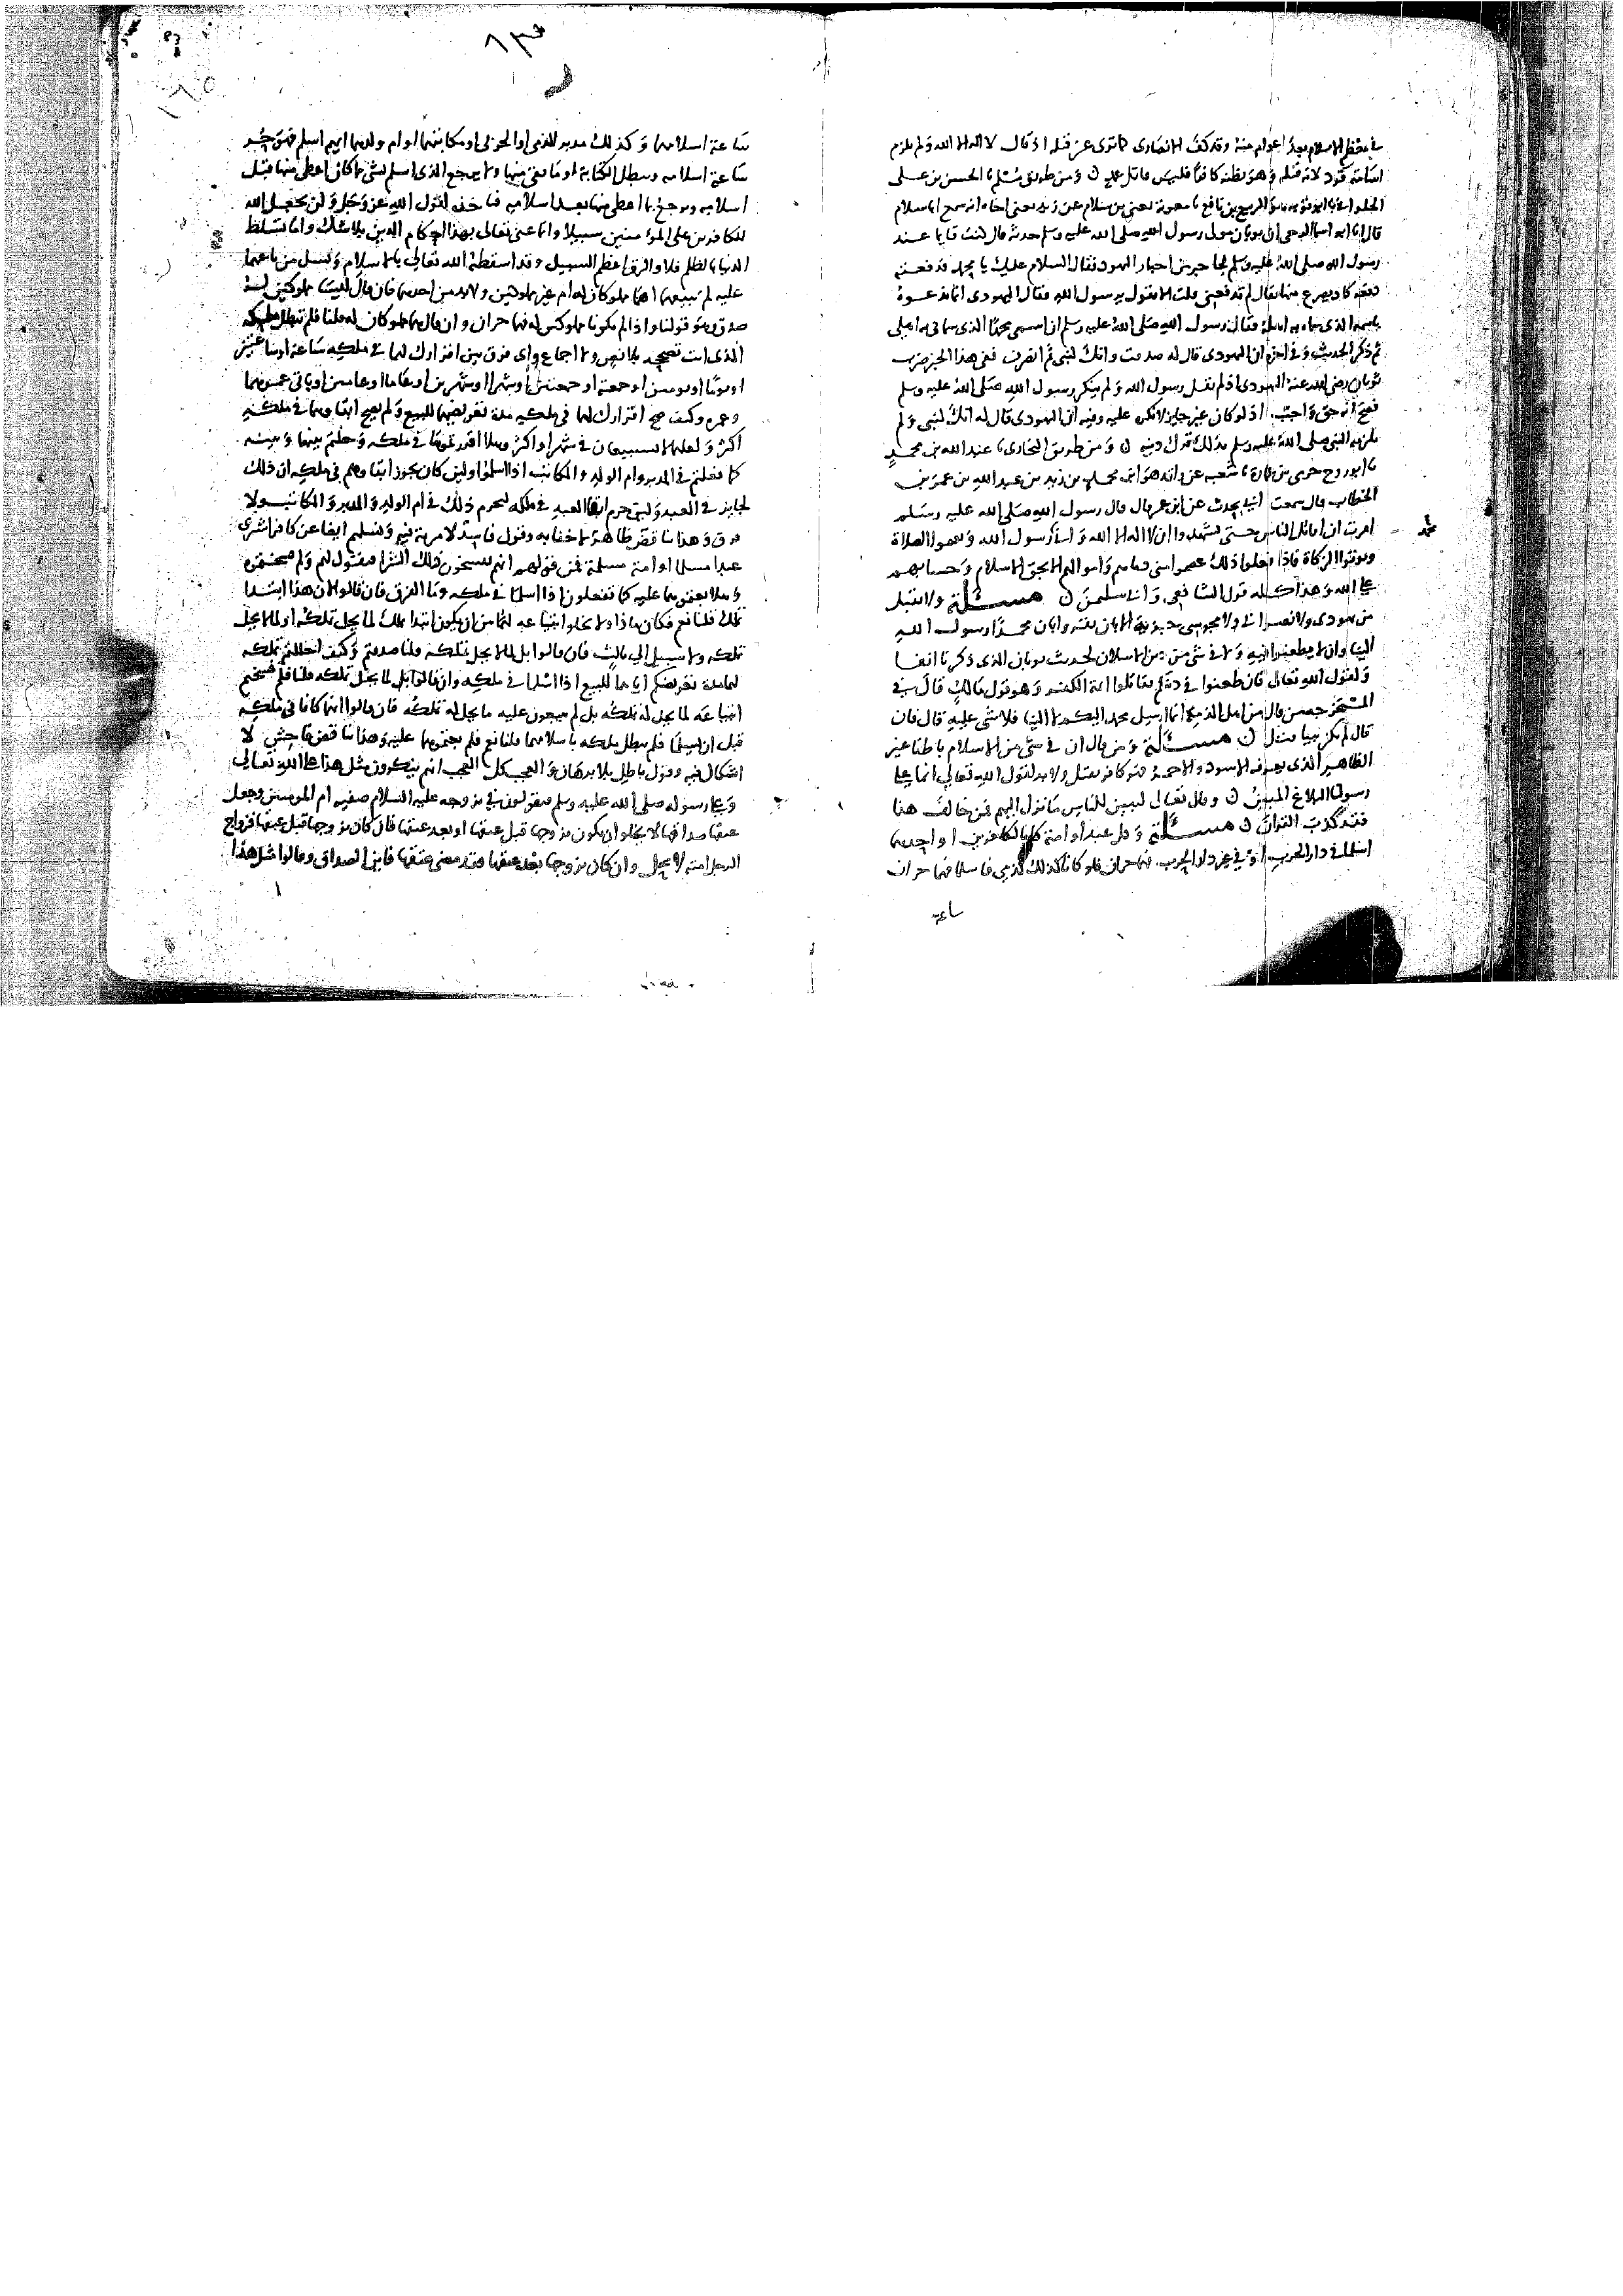 في بعض الاسلام بعد اعوام منه وقد كف الانصارى كما ترى عن قتله اذ قال لا اله الا الله ولم يلزم
اسامة قود لانه قتله وهو يظنه كافرا فليس قاتل عمد ومن طريق مسلم نا الحسن بن على
الحلوانى نا ابو توبة هو الربيع بن نافع نا معوية يعنى بن سلام عن زيد يعنى اخاه انه سمع ابا سلام
قال نا ابو اسما الرحبى ان ثوبان مولى رسول الله صلى الله عليه وسلم حدثه قال كنت قايما عند
رسول الله صلى الله عليه وسلم فجا حبر من احبار اليهود فقال السلام عليك يا محمد فدفعته
دفعة كاد يصرع منها فقال لم تدفعنى قلت الا تقول يرسول الله فقال اليهودى انما ندعوه
باسمه الذى سماه به اهله فقال رسول الله صلى الله عليه وسلم ان اسمى محمد الذى سمانى به اهلى
ثم ذكر الحديث وفى اخره ان اليهودى قال له صدقت وانك لنبى ثم انصرف ففى هذا الخبر ضرب
ثوبان رضى الله عنه اليهودى اذ لم يقل رسول الله ولم ينكر رسول الله صلى الله عليه وسلم
فصح انه حق واجب اذ لو كان غير جايز لانكره عليه وفيه ان اليهودى قال له انك لنبى ولم
يلزمه النبى صلى الله عليه وسلم بذلك ترك دينه ومن طريق البخارى نا عبد الله بن محمد
نا ابو روح حرمى بن عمارة نا شعبه عن واقد هو ابن محمد بن زيد بن عبد الله بن عمر بن
الخطاب قال سمعت ابى يحدث عن ابن عمر قال قال رسول الله صلى الله عليه وسلم
امرت ان اقاتل الناس حتى يشهدوا ان لا اله الا الله وانى رسول الله ويقيموا الصلاة
ويوتوا الزكاة فاذا فعلوا ذلك عصموا منى دماهم واموالهم الا بحق الاسلام وحسابهم
على الله وهذا كله قول الشافعى وابى سليمن مسئلة ولا يقبل
من يهودى ولا نصرانى ولا مجوسى جزية الا بان يقروا بان محمدا رسول الله
الينا وان لا يطعنوا فيه ولا فى شى من دين الاسلام لحديث ثوبان الذى ذكرنا انفا
ولقول الله تعالى فان طعنوا فى دينكم فقاتلوا ائمة الكفر وهو قول مالك قال فى
المستخرجه من قال من اهل الذمة انما ارسل محمد اليكم لا الينا فلا شى عليه قال فان
قال لم يكن نبيا قتل مسئلة ومن قال ان فى شى من الاسلام باطنا غير
الظاهر الذى يعرفه الاسود والاحمر فهو كافر يقتل ولا بد لقول الله تعالى انما على
رسولنا البلاغ المبين وقال تعالى لتبين للناس ما نزل اليهم فمن خالف هذا
فقد كذب القران مسئلة وكل عبد او امة كانا لكافرين او احدهما
اسلما فى دار الحرب او فى غير دار الحرب فهما حران فلو كانا كذلك لذمى فاسلما فهما حران
ساعة
محمد
١٣٥
ساعة اسلامهما وكذلك مدبر الذمى او الحربى او مكاتبهما او ام ولدهما ايهم اسلم فهو حر
ساعة اسلامه وبطل الكتابة او ما بقى منها ولا يرجع الذى اسلم بشى مما كان اعطى منها قبل
اسلامه ويرجع بما اعطى منها بعد اسلامه فياخذه لقول الله عز وجل ولن يجعل الله
للكافرين على المومنين سبيلا وانما عنى تعالى بهذا احكام الدين بلا شك واما تسلط
الدنيا بالظلم فلا والرق اعظم السبيل وقد اسقطه الله تعالى بالاسلام ونسل من باعهما
عليه لم تبيعهما اهما مملوكان له ام غير مملوكين ولا بد من احدهما فان قال ليسا مملوكين له
صدق وهو قولنا واذا لم يكونا مملوكين له فهما حران وان قال هما مملوكان له قلنا فلم تبطل ملكه
الذى انت تصححه بلا نص ولا اجماع واى فرق بين اقرارك لهما فى ملكه ساعة او ساعتين
او يوما او يومين او جمعة او جمعتين او شهرا او شهرين او عاما او عامين او باقى عمرهما
وعمره وكيف صح اقرارك لهما فى ملكه مدة تعريضهما للبيع ولم يصح ابقاوهما فى ملكه
اكثر ولعلهما لا يستبيعان فى شهر او اكثر وهلا اقررتموهما فى ملكه وحلتم بينهما وبينه
كما فعلتم فى المدبر وام الولد والمكاتب اذا اسلموا ولين كان يجوز ابقاوهم فى ملكه ان ذلك
لجايز فى العبد ولين حرم ابقا العبد فى ملكه ليحرم ذلك فى ام الولد والمدبر والمكاتب ولا
فرق وهذا تناقض ظاهر لا خفا به وقول فاسد لا مرية فيه ونسلهم ايضا عن كافر اشترى
عبدا مسلما او امة مسلمة فمن قولهم انهم يفسخون ذلك الشرا فنقول لهم ولم فسختموه
وهلا بعتموهما عليه كما تفعلون اذا اسلما فى ملكه وما الفرق فان قالوا لان هذا ابتدا
تملك قلنا نعم فكان ماذا ولا تخلو ابتياعه لهما من ان يكون ابتدا تملك لما يحل تملكه او لما لا يحل
تملكه ولا سبيل الى ثالث فان قالوا بل لما لا يحل تملكه قلنا صدقتم وكيف احللتم تملكه
لهما مدة تعريضكم اياهما للبيع اذا اسلما فى ملكه وان قالوا بل لما يحل تملكه قلنا فلم فسختم
ابتياعه لما يحل له تملكه بل لم تبيعون عليه ما يحل له تملكه فان قالوا انهما كانا فى ملكه
قبل ان يسلما فلم يبطل ملكه باسلامهما قلنا نعم فلم بعتموهما عليه وهذا تناقض فاحش لا
اشكال فيه وقول باطل بلا برهان والعجب كل العجب انهم ينكرون مثل هذا على الله تعالى
وعلى رسوله صلى الله عليه وسلم فيقولون فى تزوجه عليه السلام صفيه ام المومنين وجعل
عتقها صداقها لا يخلو ان يكون تزوجها قبل عتقها او بعد عتقها فان كان تزوجها قبل عتقها فزواج
الرجل امته لا يحل وان كان تزوجها بعد عتقها فقد مضى عتقها فاين الصداق وقالوا مثل هذا